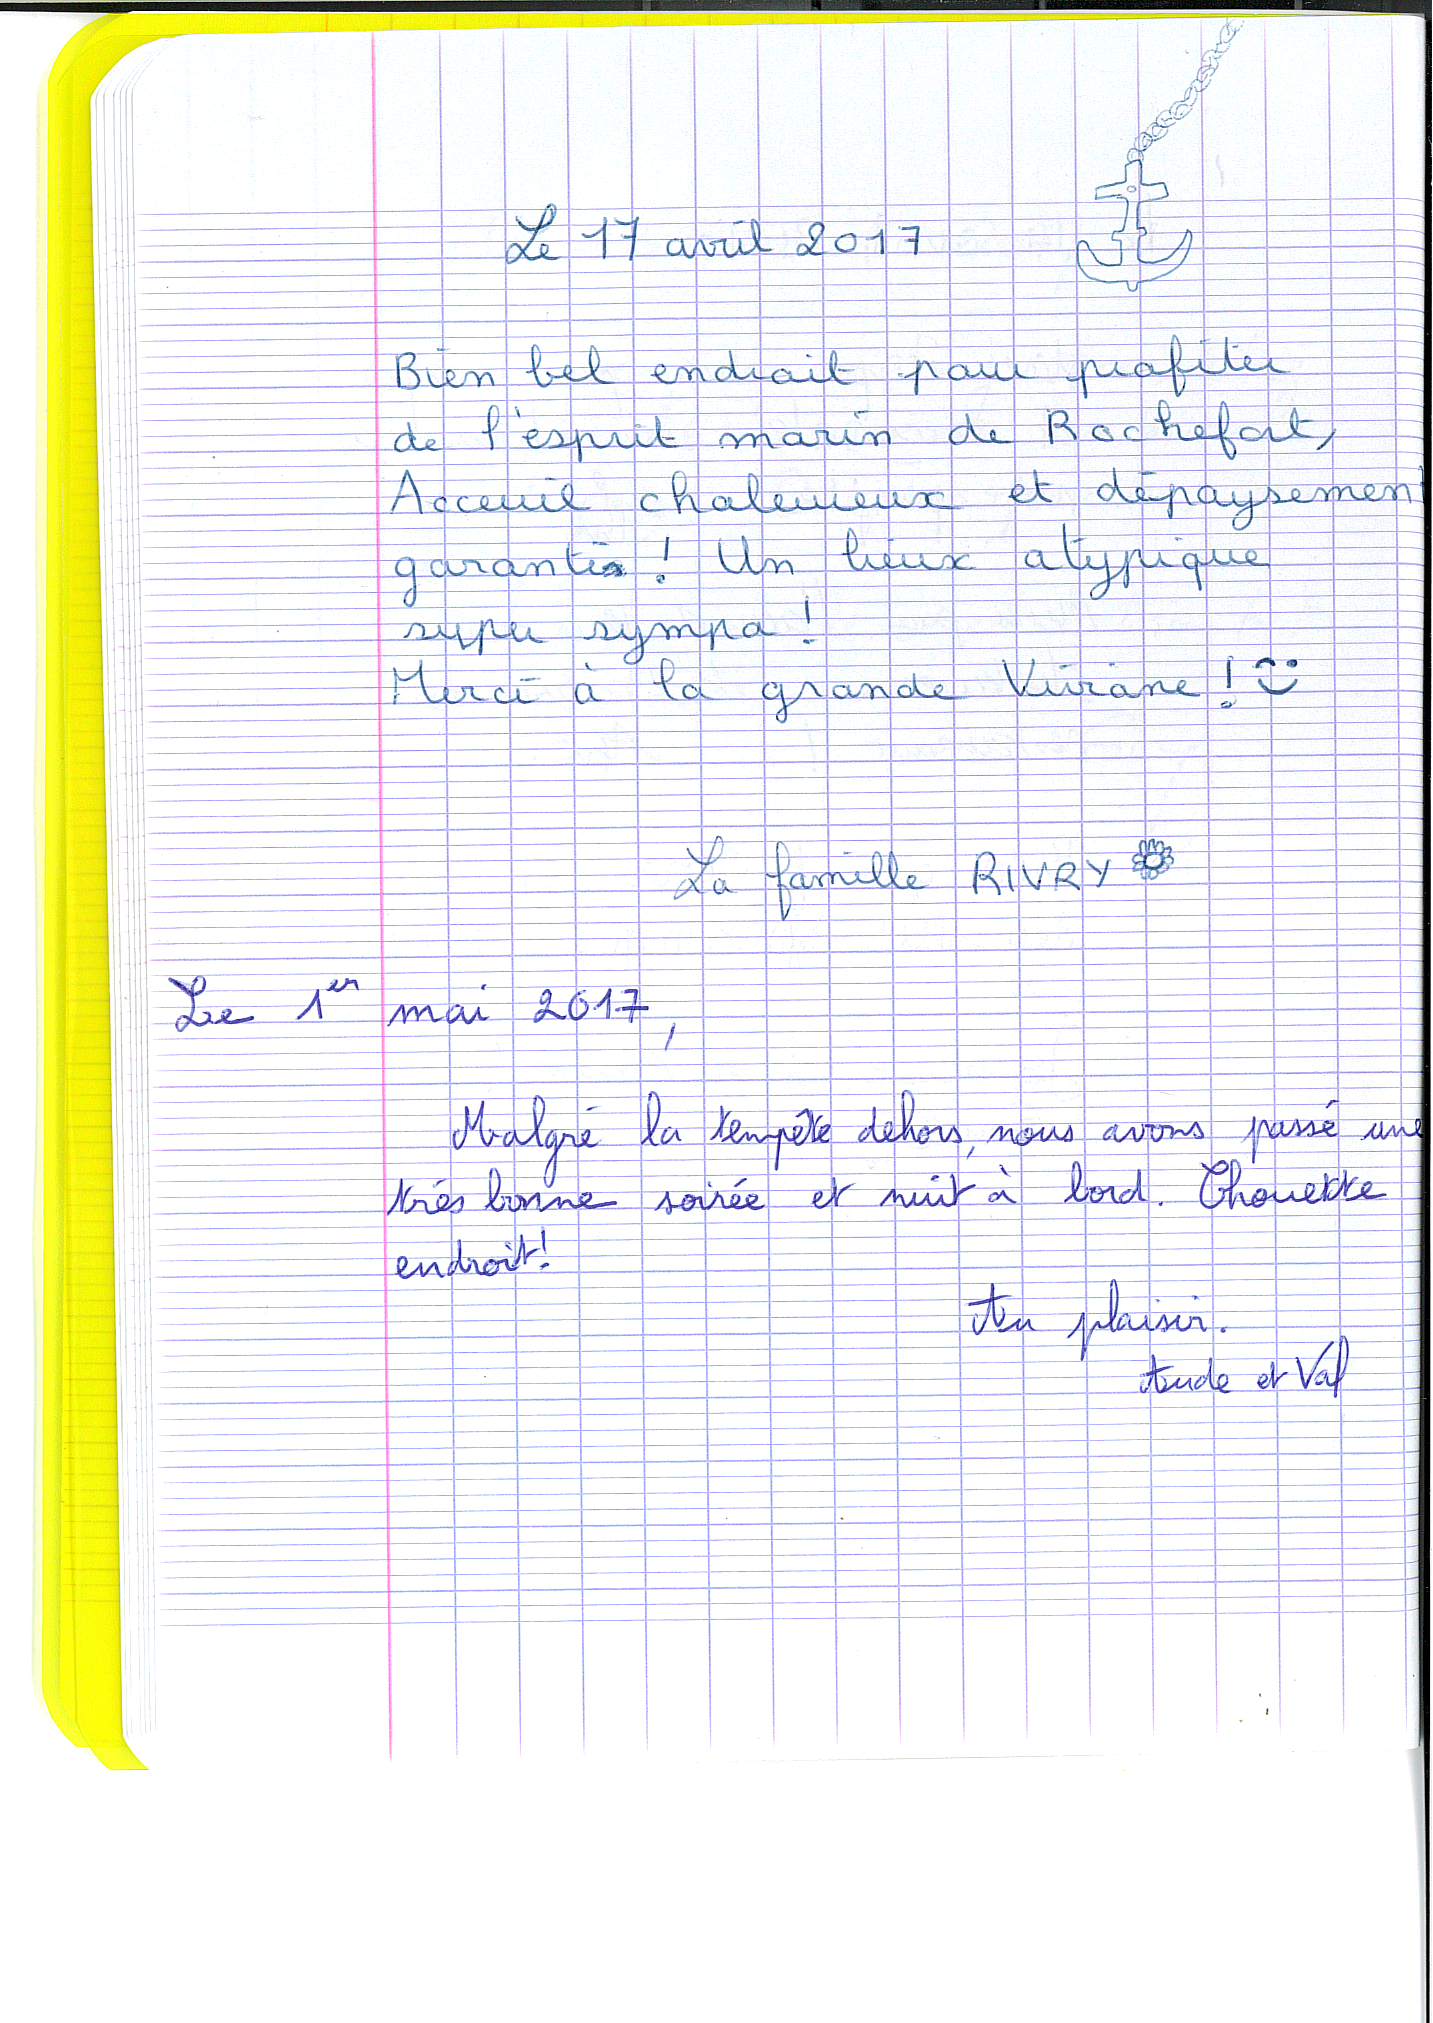 Le 17 avril 2017
Bien bel endroit pour profiter
de l'esprit marin de Rochefort,
Acceuil chaleureux et dépaysement
garantis ! Un lieux atypique
super sympa !
Merci à la grande Viviane !
La famille RIVRY
Le 1er mai 2017,
Malgré la tempête dehors, nous avons passé une
très bonne soirée et nuit à bord. Chouette
endroit !
Au plaisir.
Aude et Val